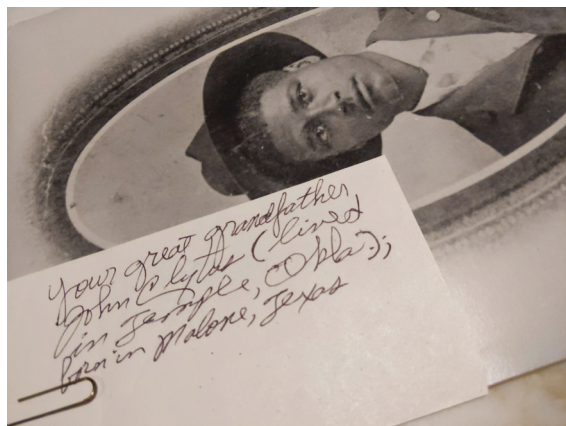 your great grandfather,
John Clytus (lived
in Temple, Okla.);
born in Malone, Texas